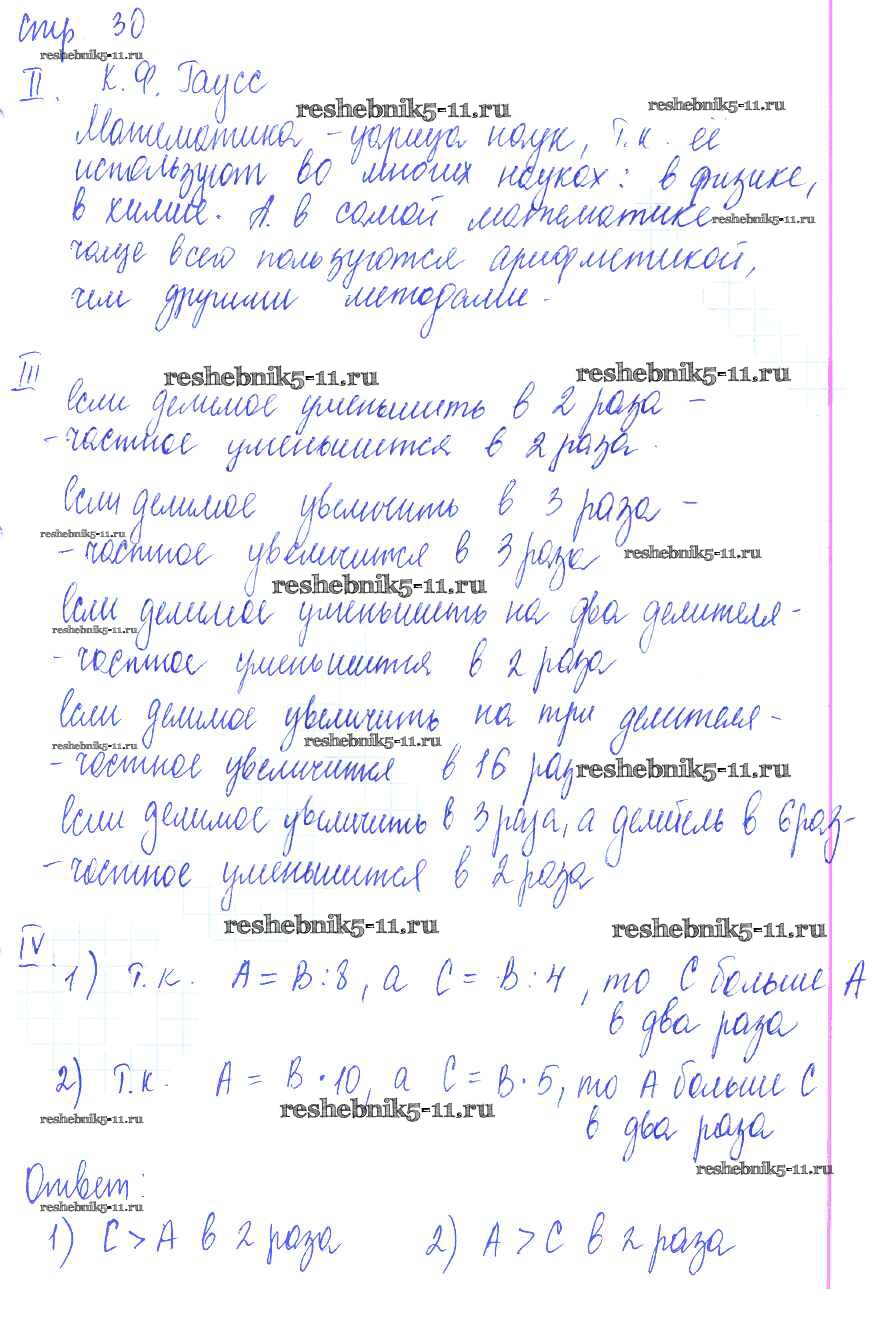 стр. 30
reshebnik5-11.ru
II. К. Ф. Гаусс
reshebnik5-11.ru
reshebnik5-11.ru
Математика - царица наук, т.к. её
используют во многих науках: в физике,
в химие. А в самой математике
reshebnik5-11.ru
чаще всего пользуются арифметикой,
чем другими методами.
III
reshebnik5-11.ru
reshebnik5-11.ru
Если делимое уменьшить в 2 раза -
- частное уменьшится в 2 раза.
Если делимое увеличить в 3 раза -
reshebnik5-11.ru
- частное увеличится в 3 раза
reshebnik5-11.ru
reshebnik5-11.ru
Если делимое уменьшить на два делителя -
reshebnik5-11.ru
- частное уменьшится в 2 раза
Если делимое увеличить на три делителя -
reshebnik5-11.ru
reshebnik5-11.ru
- частное увеличится в 16 раз
reshebnik5-11.ru
Если делимое увеличить в 3 раза, а делитель в 6 раз -
- частное уменьшится в 2 раза
reshebnik5-11.ru
reshebnik5-11.ru
IV.
1) Т.к. А = В : 8, а С = В : 4, то С больше А
в два раза
2) Т.к. А = В · 10, а С = В · 5, то А больше С
reshebnik5-11.ru
reshebnik5-11.ru
в два раза
reshebnik5-11.ru
Ответ:
reshebnik5-11.ru
1) С > А в 2 раза 2) А > С в 2 раза